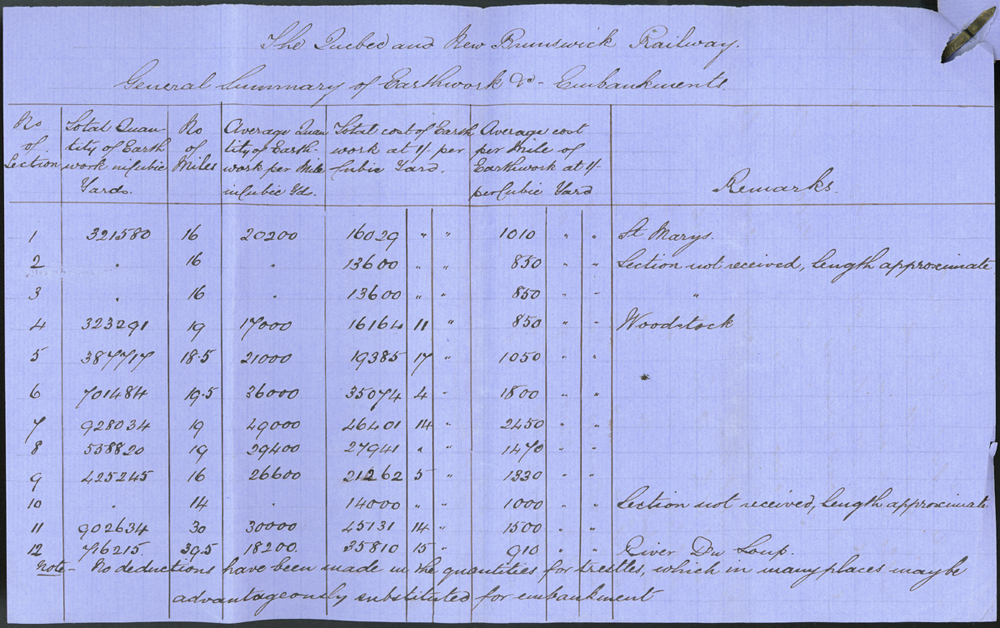 The Quebec and New Brunswick Railway.
General Summary of Earthwork &c - Embankments
No of Section | Total Quantity of Earth work in Cubic Yards. | No of Miles | Average Quantity of Earthwork per Mile in Cubic Yd. | Total cost of Earth work at 1/. per Cubic Yard. | Average cost per Mile of Earthwork at 1/ per Cubic Yard | Remarks.
1 321580 16 20200 16029 " " 1010 " " St Marys.
2 . 16 . 13600 " " 850 " " Section not received, length approximate
3 . 16 . 13600 " " 850 " " "
4 323291 19 17000 16164 11 " 850 " " Woodstock
5 387717 18.5 21000 19385 17 " 1050 " "
6 701484 19.5 36000 35074 4 " 1800 " "
7 928034 19 49000 46401 14 " 2450 " "
8 558820 19 29400 27941 " " 1470 " "
9 425245 16 26600 21262 5 " 1330 " "
10 . 14 . 14000 " " 1000 " " Section not received, length approximate
11 902634 30 30000 45131 14 " 1500 " "
12 716215. 39.5 18200. 35810 15 " 910 " " River Du Loup.
Note - No deductions have been made in the quantities for trestles, which in many places may be
advantageously substituted for embankment